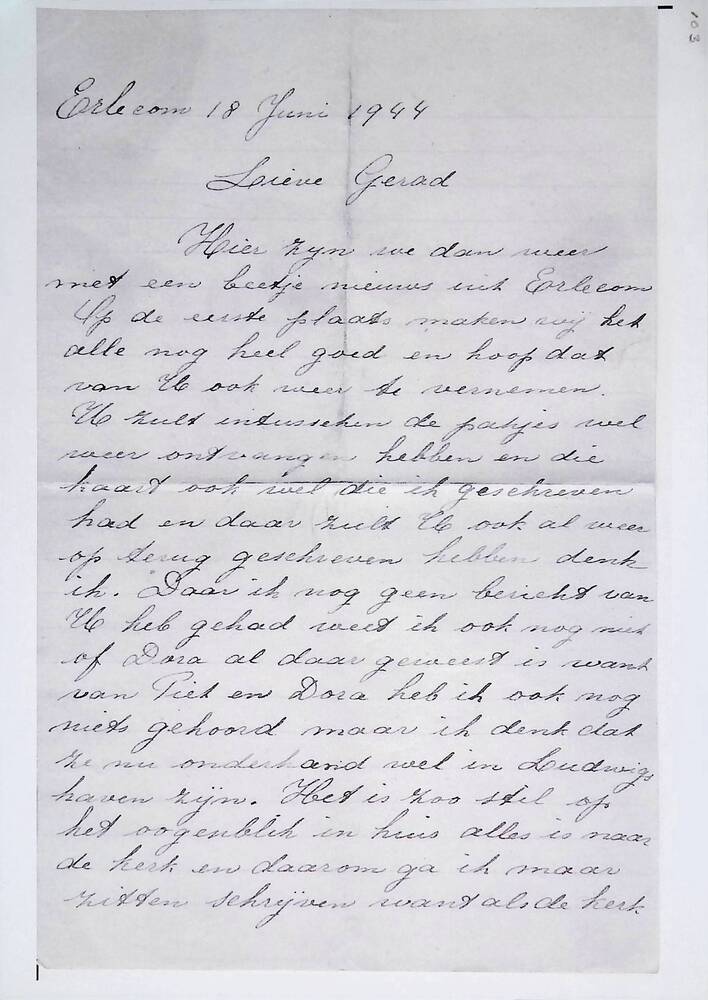 103
Erlecom 18 Juni 1944
Lieve Gerad
Hier zyn we dan weer
met een beetje nieuws uit Erlecom
Op de eerste plaats maken wij het
alle nog heel goed en hoop dat
van U ook weer te vernemen.
U zult intusschen de pakjes wel
weer ontvangen hebben en die
kaart ook wel die ik geschreven
had en daar zult U ook al weer
op terug geschreven hebben denk
ik. Daar ik nog geen bericht van
U heb gehad weet ik ook nog niet
of Dora al daar geweest is want
van Piet en Dora heb ik ook nog
niets gehoord maar ik denk dat
ze nu onderhand wel in Ludwigs
haven zijn. Het is zoo stil op
het oogenblik in huis alles is naar
de kerk en daarom ga ik maar
zitten schrijven want als de kerk